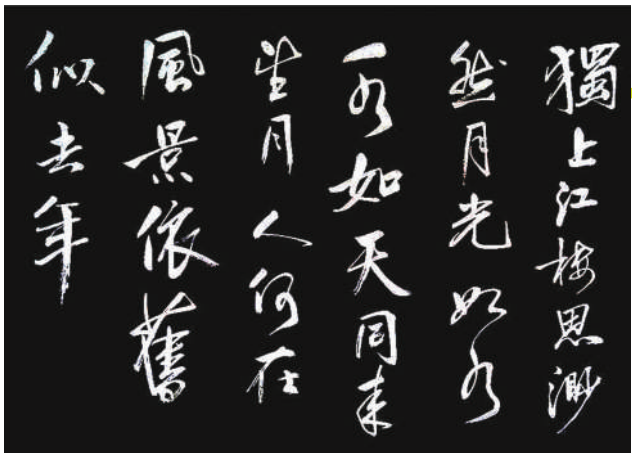 獨上江楼思渺
然月光如水
水如天同来
望月人何在
風景依舊
似去年